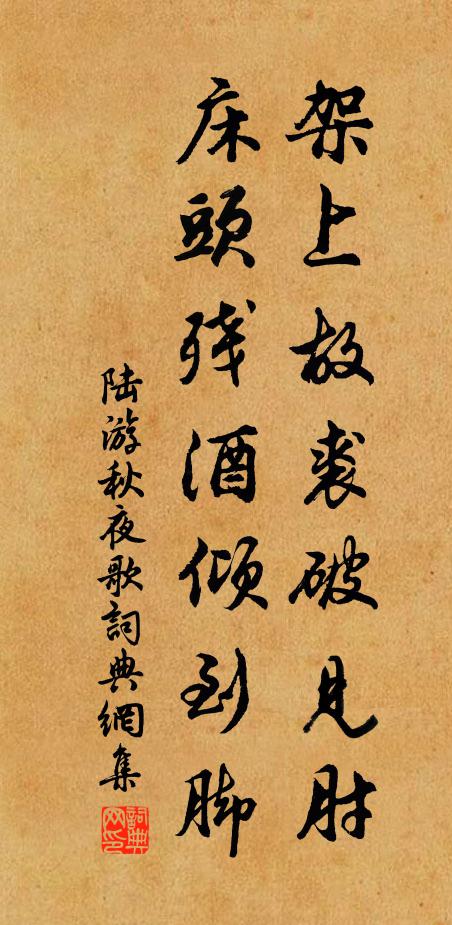 架上故裘破見肘
床頭殘酒傾到脚
陆游秋夜歌詞典網集
詞典網印